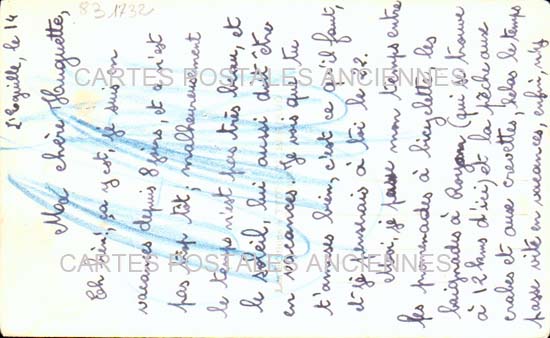 83 1732
L'Eguille, le 14
Ma chère Huguette,
Eh bien, ça y est, je suis en
vacances depuis 8 jours, et ce n'est
pas trop tôt, malheureusement
le temps n'est pas très beau, et
le soleil, lui aussi doit être
en vacances. Je vois que tu
t'amuses bien, c'est ce qu'il faut,
et je penserais à toi le 22.
Moi, je passe mon temps entre
les promenades à bicyclette, les
baignades à Royan (qui se trouve
à 12 kms d'ici) et la pêche aux
crabes et aux crevettes, hélas le temps
passe vite en vacances, enfin, n'y
CARTES POSTALES ANCIENNES
CARTES POSTALES ANCIENNES